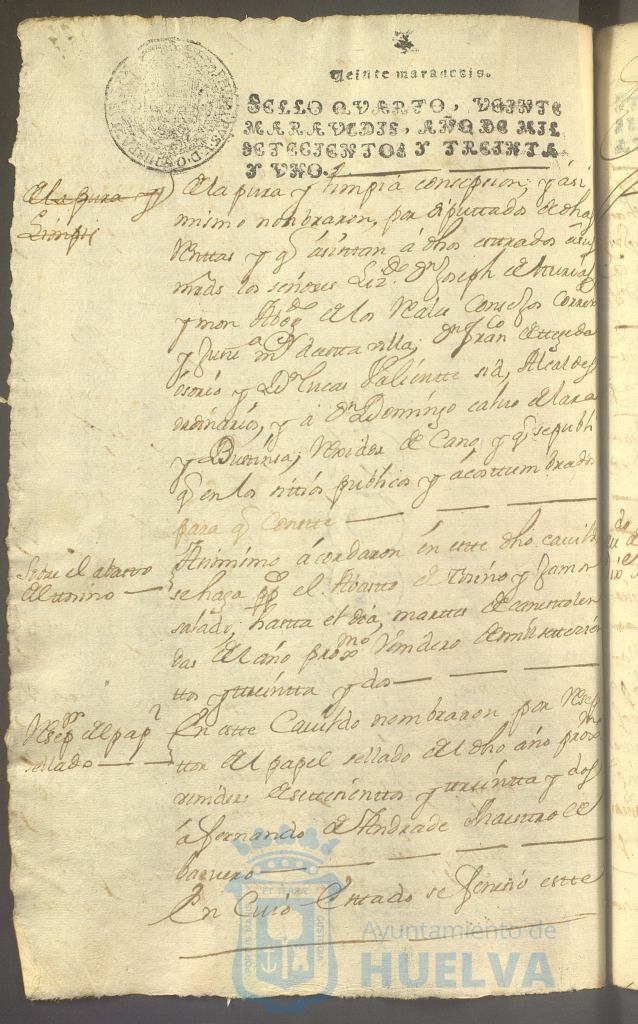 Veinte maravedis.
SELLO QVARTO, VEINTE
MARAVEDIS, AÑO DE MIL
SETECIENTOS Y TREINTA
Y VNO.
de la pura y
Limpi
de la pura y limpia consepcion, y ási
mismo nombraron, por diputtados de dha
Renttas y q ásistan á dhos
los señores Liz.do Dn Joseph de
y mon Abogdo de los Reales Consejos Correx
y Justa mr desta villa, Dn Franco de tejeda
ósorio y Dn Lucas Valientte Alcaldes
ordinarios, y á Dn Domingo calvo de lara
y Bustinsa, Rexidor de Cano, y q se publi
q en los sittios publicos y ácosttumbrados
para q Conste
Sobre el abasto
de tosino
Asimismo ácordaron en este dho cavildo
se haga pp el Abasto de Tosino y Jamon
salado, hasta el dia, martes de carnestolen
das del año proxmo Venidero de mil settesien
ttos y treintta y dos
Resepr del papl
sellado
En este Cavildo nombraron por Resep
ttor del papel sellado del dho año proxmo
venider de settesienttos y treintta y dos
á fernando de Andrade Maestro de
barvero
En Cuio Esttado se feneció este
Ayuntamiento de
HUELVA
PORTUS MARIS
ET TERRAE
CUSTODIA